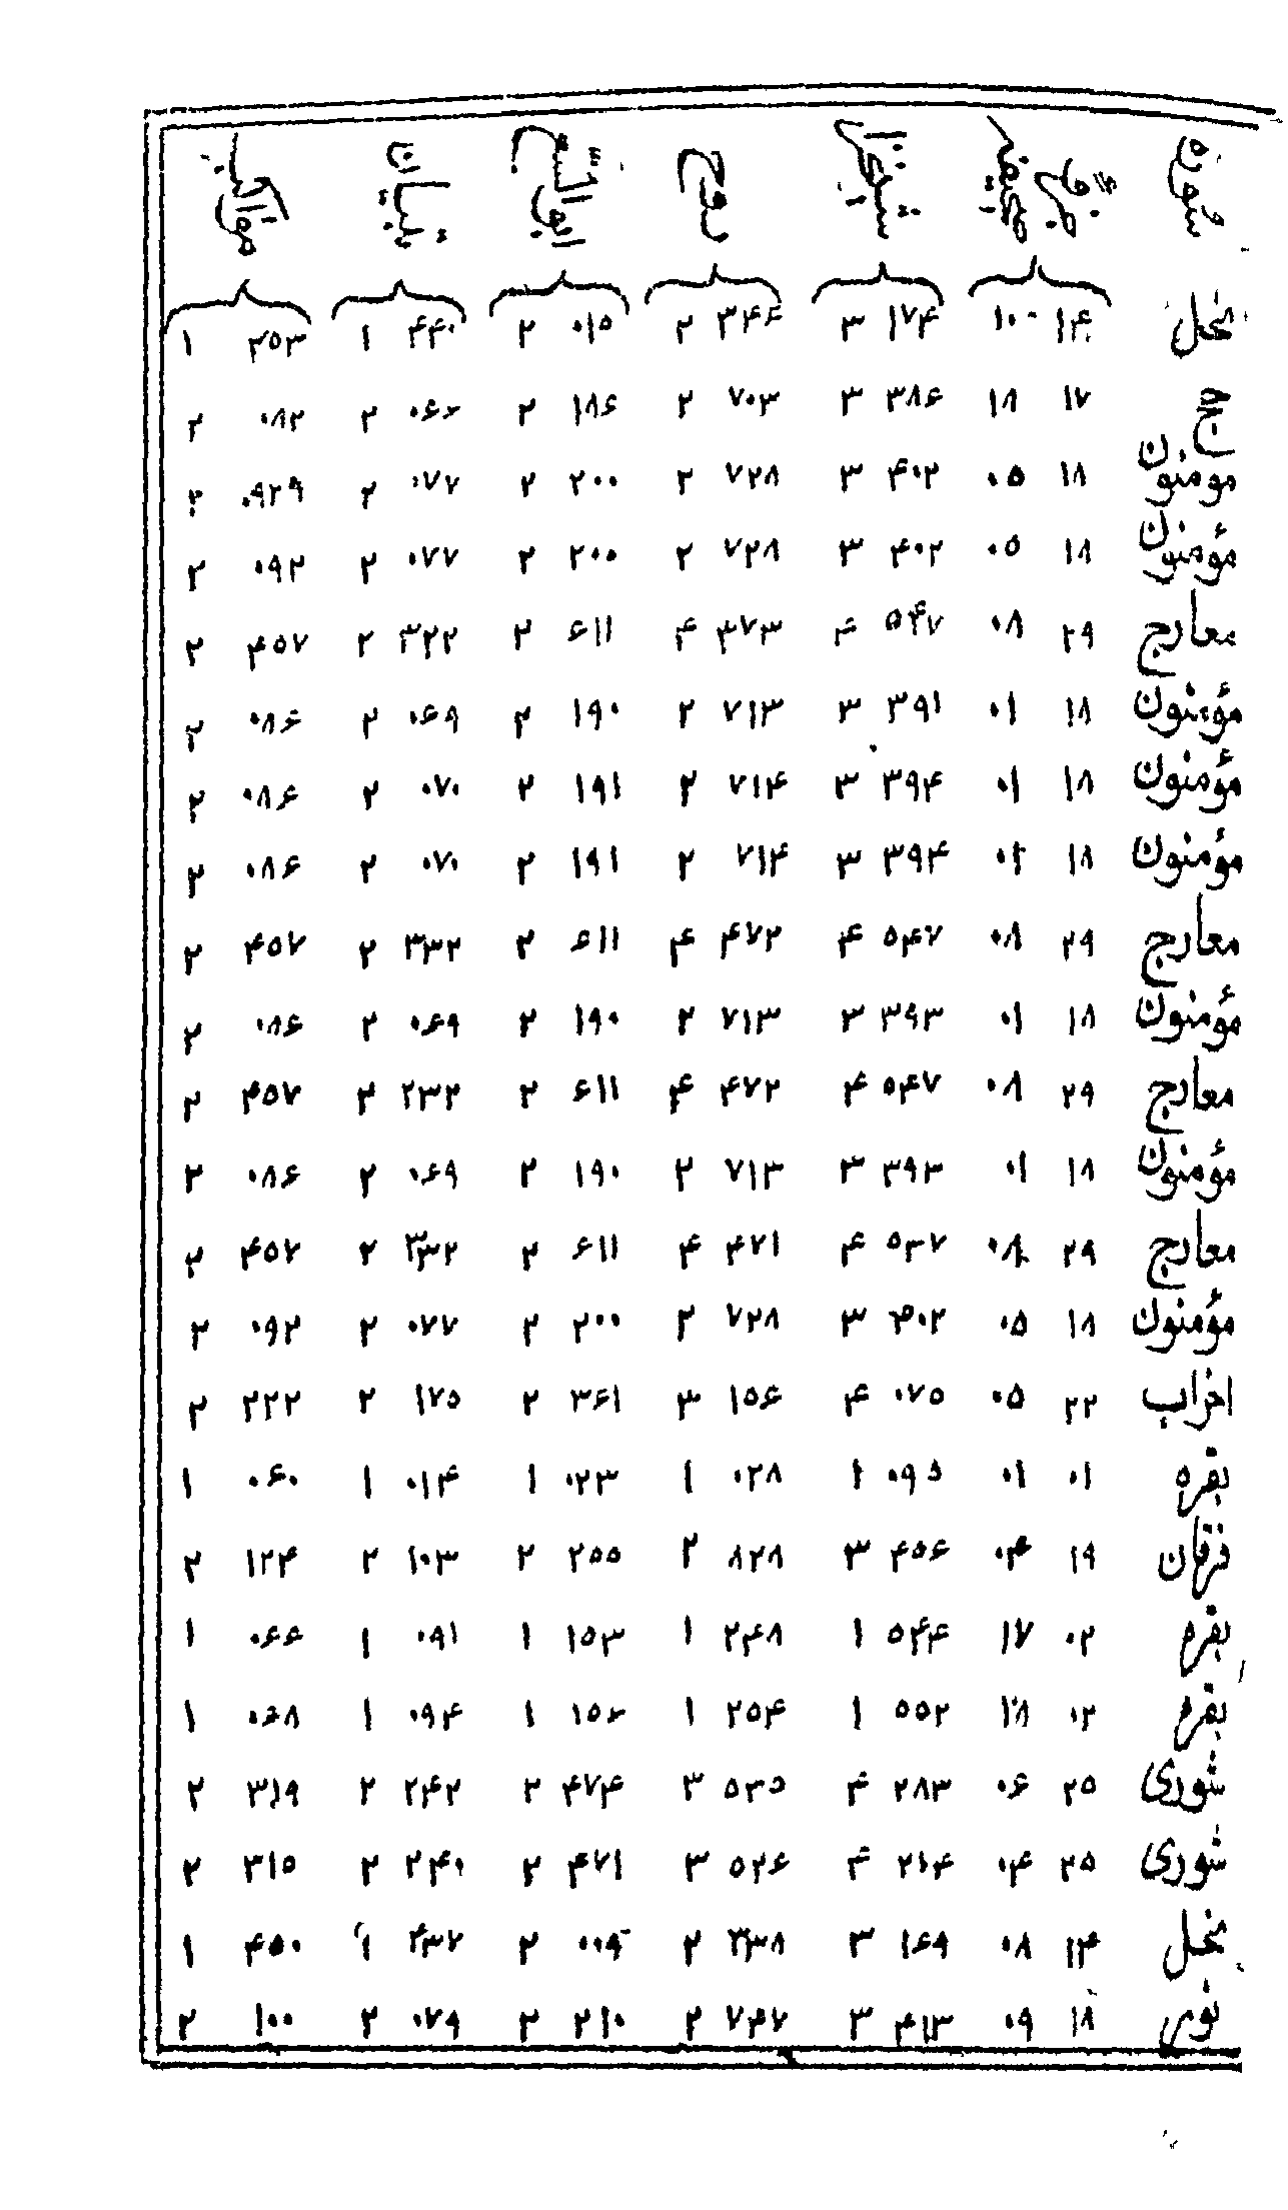 سوره جزو صحیفه شیخزاده روح ابو السعود تبیان مواکب
نحل ۱۴ ۱۰ ۱۷۴ ۳ ۳۴۶ ۲ ۰۱۵ ۲ ۴۴۰ ۱ ۳۵۳ ۱
حج ۱۷ ۱۸ ۳۸۶ ۳ ۷۰۳ ۲ ۱۸۶ ۲ ۰۶۶ ۲ ۰۸۲ ۲
مومنون ۱۸ ۰۵ ۴۰۲ ۳ ۷۲۸ ۲ ۲۰۰ ۲ ۰۷۷ ۲ ۰۹۲۹ ۲
مؤمنون ۱۸ ۰۵ ۴۰۲ ۳ ۷۲۸ ۲ ۲۰۰ ۲ ۰۷۷ ۲ ۰۹۲ ۲
معارج ۲۹ ۰۸ ۵۴۷ ۴ ۳۷۳ ۴ ۶۱۱ ۲ ۳۲۲ ۲ ۴۵۷ ۲
مؤمنون ۱۸ ۰۱ ۳۹۱ ۳ ۷۱۳ ۲ ۱۹۰ ۲ ۰۶۹ ۲ ۰۸۶ ۲
مؤمنون ۱۸ ۰۱ ۳۹۴ ۳ ۷۱۴ ۲ ۱۹۱ ۲ ۰۷۰ ۲ ۰۸۶ ۲
مؤمنون ۱۸ ۰۲ ۳۹۴ ۳ ۷۱۴ ۲ ۱۹۱ ۲ ۰۷۰ ۲ ۰۸۶ ۲
معارج ۲۹ ۰۸ ۵۴۷ ۴ ۴۷۲ ۴ ۶۱۱ ۲ ۳۳۲ ۲ ۴۵۷ ۲
مؤمنون ۱۸ ۰۱ ۳۹۳ ۳ ۷۱۳ ۲ ۱۹۰ ۲ ۰۶۹ ۲ ۰۸۶ ۲
معارج ۲۹ ۰۸ ۵۴۷ ۴ ۴۷۲ ۴ ۶۱۱ ۲ ۲۳۲ ۲ ۴۵۷ ۲
مؤمنون ۱۸ ۰۱ ۳۹۳ ۳ ۷۱۳ ۲ ۱۹۰ ۲ ۰۶۹ ۲ ۰۸۶ ۲
معارج ۲۹ ۰۸ ۵۳۷ ۴ ۴۷۱ ۴ ۶۱۱ ۲ ۳۳۲ ۲ ۴۵۷ ۲
مؤمنون ۱۸ ۰۵ ۴۰۲ ۳ ۷۲۸ ۲ ۲۰۰ ۲ ۰۷۷ ۲ ۰۹۲ ۲
احزاب ۲۲ ۰۵ ۰۷۵ ۴ ۱۵۶ ۳ ۳۶۱ ۲ ۱۷۵ ۲ ۲۲۲ ۲
بقره ۰۱ ۰۱ ۰۹۵ ۱ ۰۲۸ ۱ ۰۲۳ ۱ ۰۱۴ ۱ ۰۶۰ ۱
فرقان ۱۹ ۰۴ ۴۵۶ ۳ ۸۲۸ ۲ ۲۵۵ ۲ ۱۰۳ ۲ ۱۲۴ ۲
بقره ۰۲ ۱۷ ۵۴۴ ۱ ۲۴۸ ۱ ۱۵۳ ۱ ۰۹۱ ۱ ۰۶۶ ۱
بقره ۰۲ ۱۸ ۵۵۲ ۱ ۲۵۴ ۱ ۱۵۶ ۱ ۰۹۴ ۱ ۰۶۸ ۱
شوری ۲۵ ۰۶ ۲۸۳ ۴ ۵۳۵ ۳ ۴۷۴ ۲ ۲۴۲ ۲ ۳۱۹ ۲
شوری ۲۵ ۰۴ ۲۱۴ ۴ ۵۲۶ ۳ ۴۷۱ ۲ ۲۴۰ ۲ ۳۱۵ ۲
نحل ۱۴ ۰۸ ۱۶۹ ۳ ۳۳۸ ۲ ۰۰۹ ۲ ۴۳۷ ۱ ۴۵۰ ۱
نور ۱۸ ۰۹ ۴۱۳ ۳ ۷۴۷ ۲ ۲۱۰ ۲ ۰۷۹ ۲ ۱۰۰ ۲